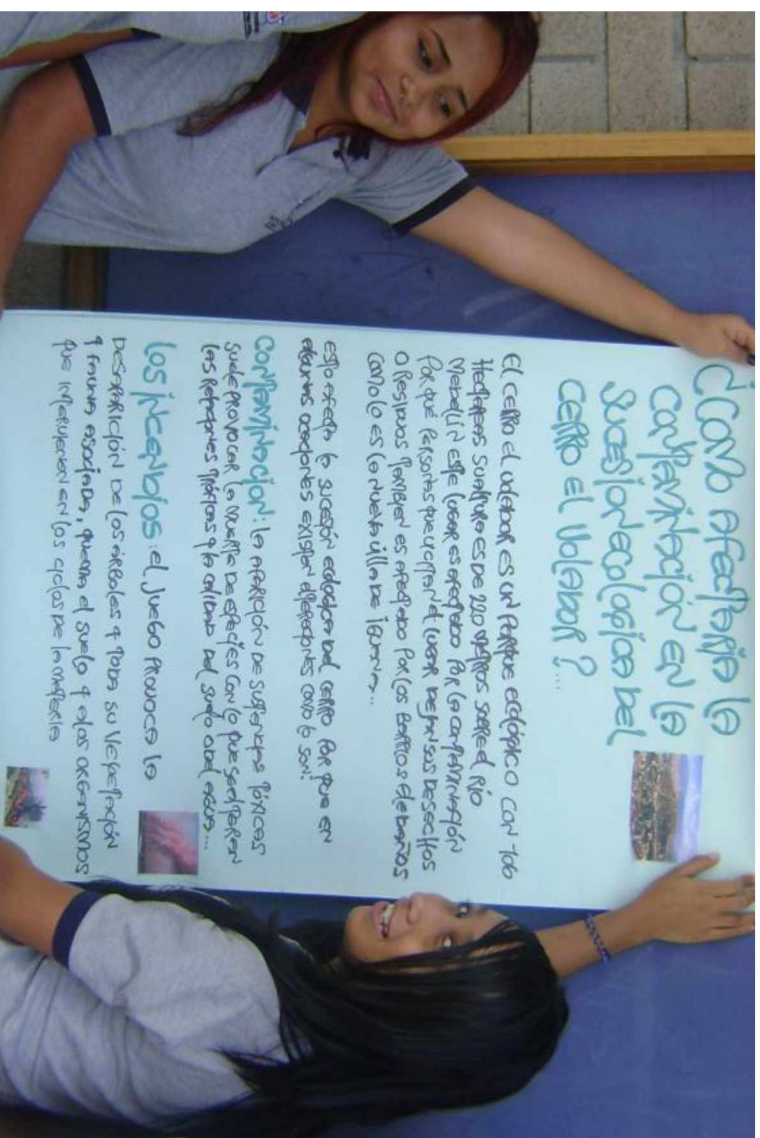 ¿Como afectaria la
contaminación en la
sucesion ecologica del
cerro el volador?...
El cerro el volador es un parque ecológico con 106
Hectareas su altura es de 220 metros sobre el río
Medellín este lugar es afectado por la contaminación
Por que personas que visitan el lugar dejan sus desechos
o residuos tambien es afectado por los barrios aledaños
como lo es la nueva villa de iguana...
Esto afecta la sucesión ecologica del cerro por que en
algunas ocaciones existen alteraciones como lo son:
Contaminacion: la aparición de sustancias tóxicas
suele provocar la muerte de especies con lo que se alteran
las relaciones tróficas y la calidad del suelo o del agua...
Los incendios: el juego provoca la
desaparición de los árboles y toda su vegetación
y fauna asociada, quema el suelo y a los organismos
que intervienen en los ciclos de la materia